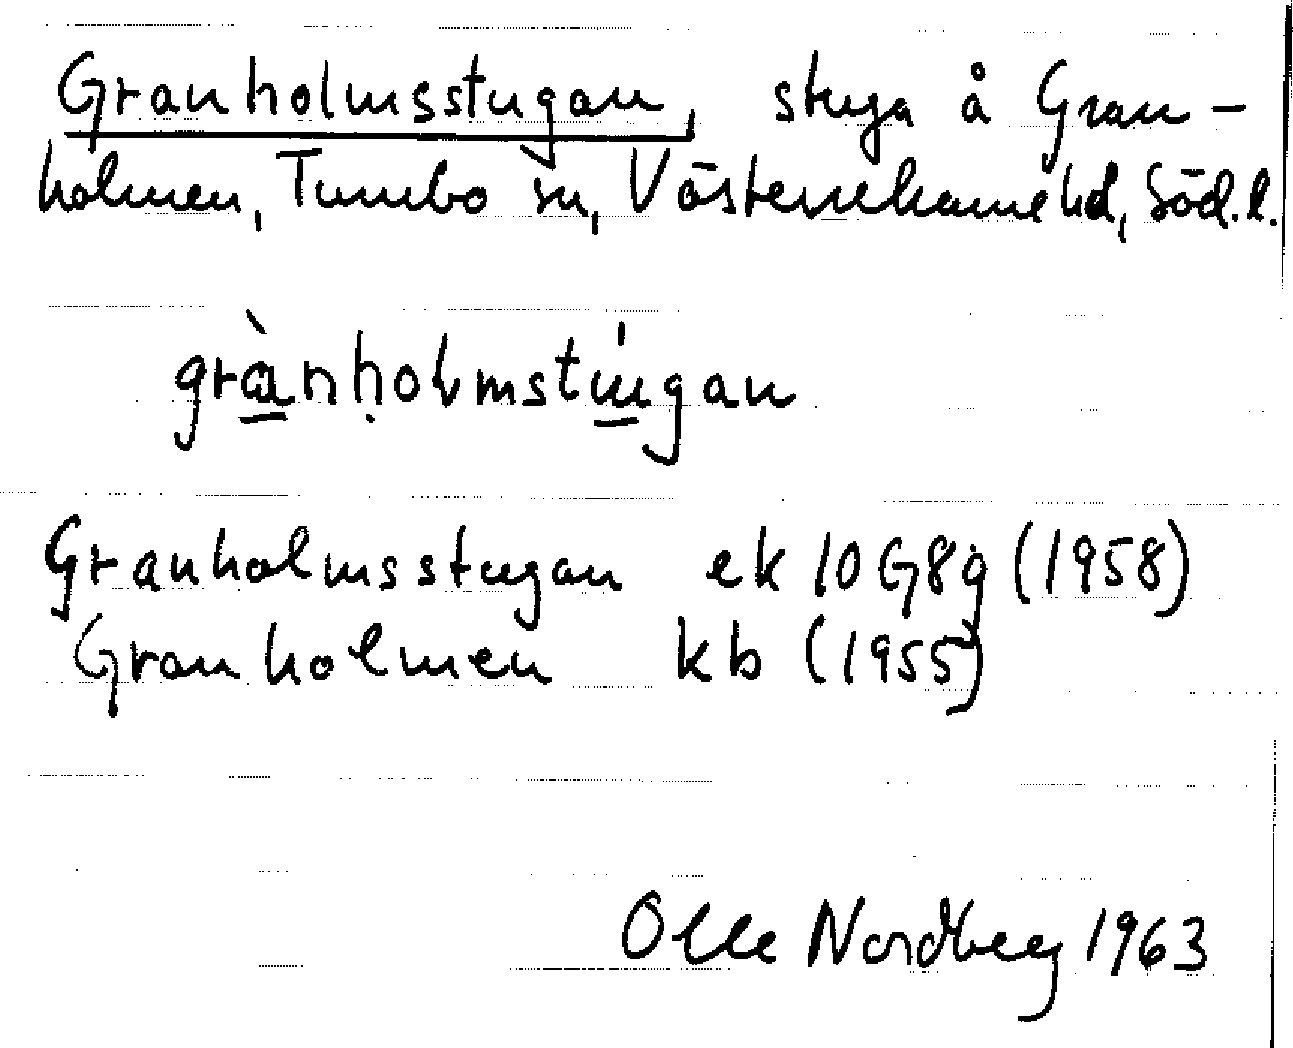 Granholmsstugan, stuga å Gran-
holmen, Tumbo sn, Västerrekarne hd, Söd.l.
grànhọlmstúgan
Granholmsstugan ek 10G8g (1958)
Granholmen kb (1955)
Olle Nordberg 1963